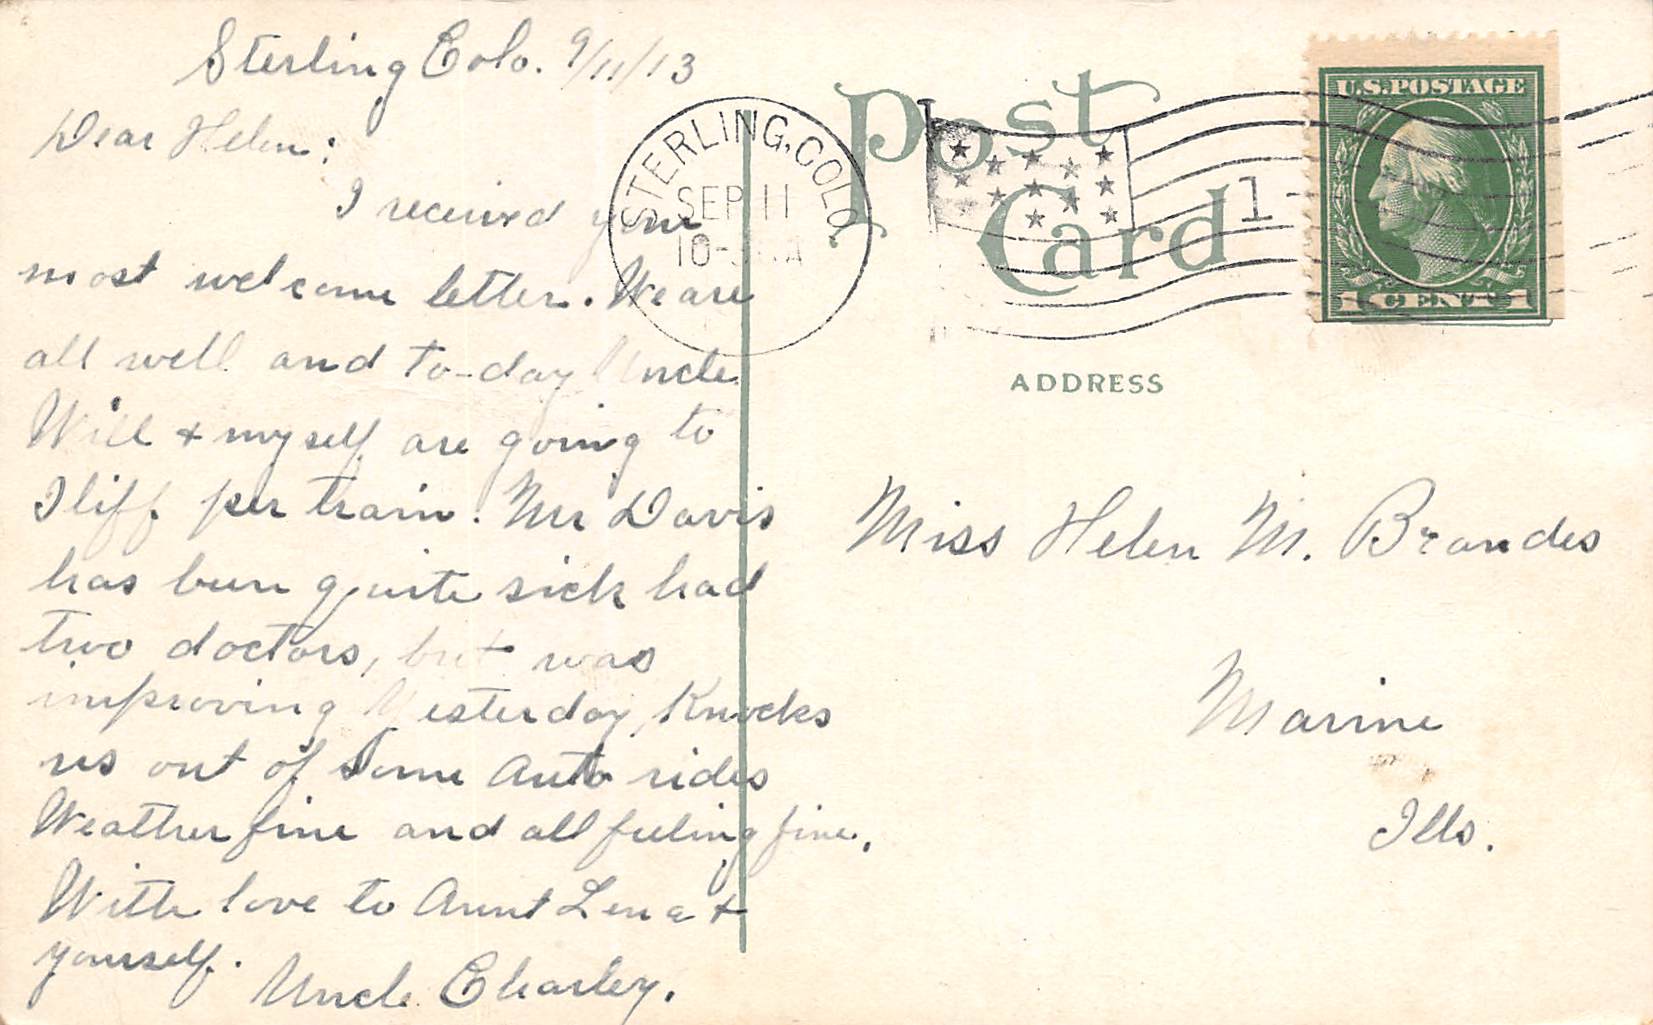 Sterling Colo. 9/11/13
Dear Helen:
I received your
most welcome letter. We are
all well and to-day Uncle
Will + myself are going to
Iliff per train. Mr Davis
has been quite sick had
two doctors, but was
improving Yesterday, Knocks
us out of some Auto rides
Weather fine and all feeling fine.
With love to Aunt Lena +
yourself.
Uncle Charley.
STERLING, COLO.
SEP 11
10-
Post
Card
1
U.S.POSTAGE
1 CENT 1
ADDRESS
Miss Helen M. Brandes
Marine
Ills.